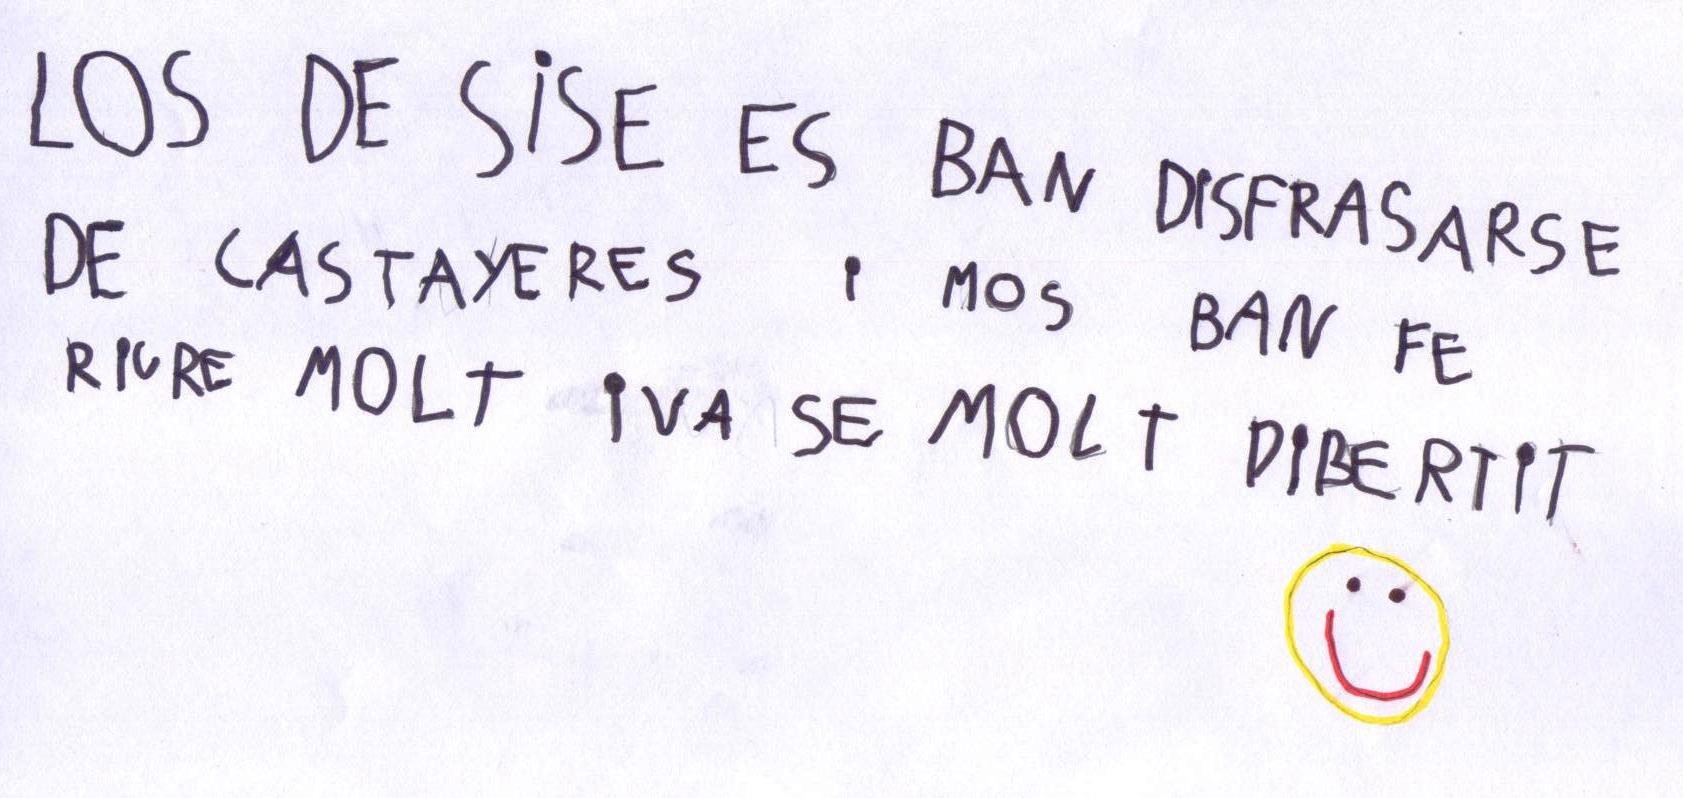 LOS DE SiSE ES BAN DISFRASARSE
DE CASTAYERES i MOS BAN FE
RIURE MOLT iVA SE MOLT DIBERTIT